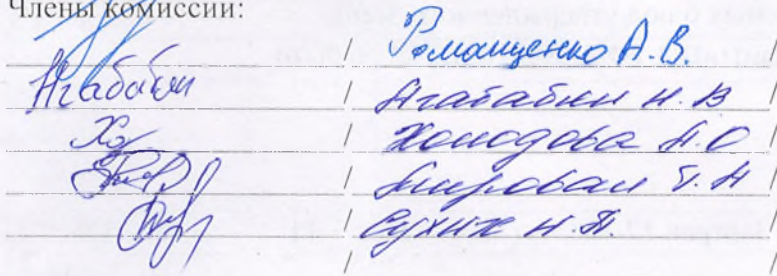 Члены комиссии:
/ Ромащенко А.В. /
Агабабян / Агабабян Н.В /
Хо / Холодова А.О /
/ /
/ Сухих Н.П. /
/ /